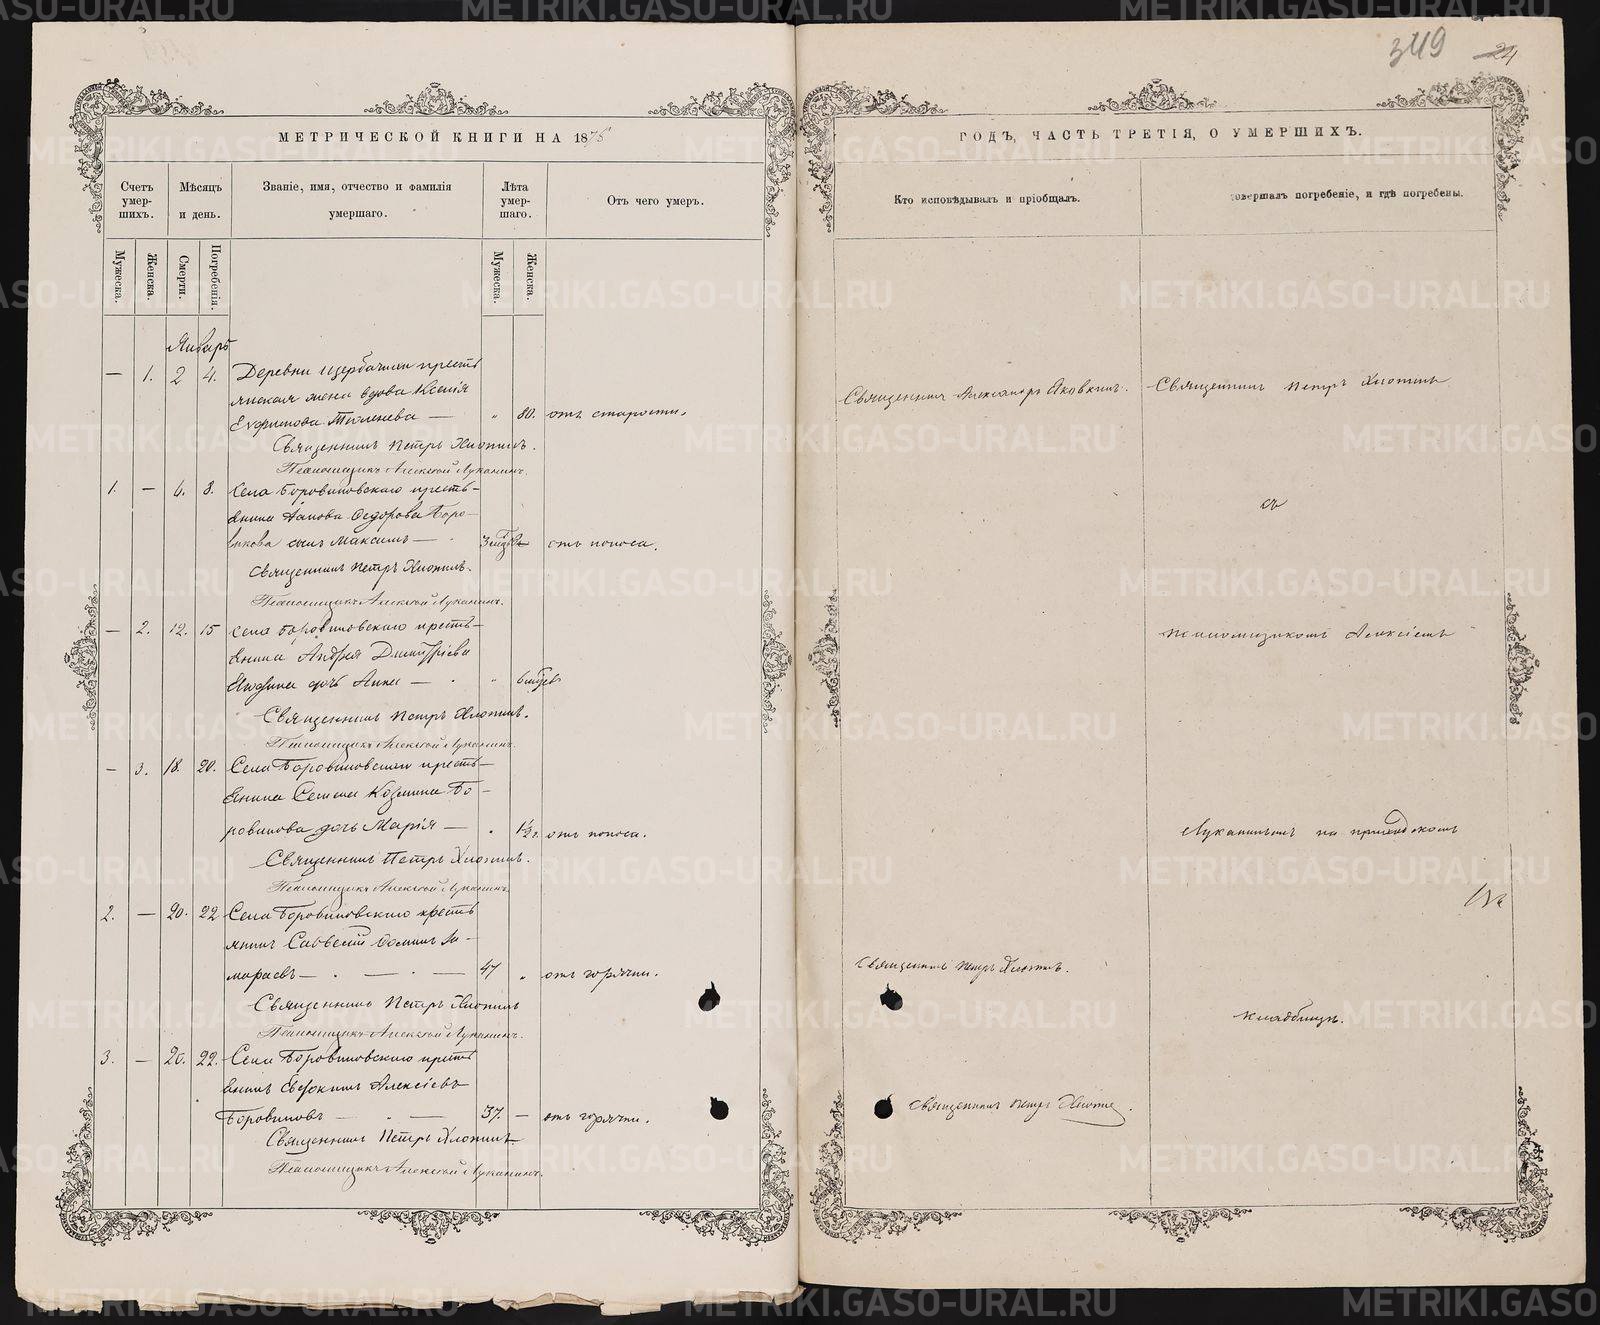 349 24
МЕТРИЧЕСКОЙ КНИГИ НА 1875
ГОДЪ, ЧАСТЬ ТРЕТІЯ, О УМЕРШИХЪ.
Счетъ умершихъ.
Мѣсяцъ и день.
Званіе, имя, отчество и фамилія умершаго.
Лѣта умершаго.
Отъ чего умеръ.
Кто исповѣдывалъ и пріобщалъ.
совершалъ погребеніе, и гдѣ погребены.
Мужеска.
Женска.
Смерти.
Погребенія.
Мужеска.
Женска.
Январь
— 1. 2 4. Деревни Щербачихи кресть
янская жена вдова Ксенія
Ефимова — „ 80. отъ старости.
Священникъ Александръ Яковкинъ. Священникъ Петръ Хлопинъ
Священникъ Петръ Хлопинъ.
Псаломщикъ Алексѣй Луканинъ.
1. — 6. 8. Села Боровиковскаго кресть-
янина Якова Ѳедорова Боро-
викова сынъ Максимъ — отъ поноса.
съ
Священникъ Петръ Хлопинъ.
Псаломщикъ Алексѣй Луканинъ.
— 2. 12. 15 Села Боровиковскаго кресть-
янина Андрея Димитріева
дочь Анна — „
псаломщикомъ Алексіемъ
Священникъ Петръ Хлопинъ.
Псаломщикъ Алексѣй Луканинъ.
— 3. 18. 20. Села Боровиковскаго кресть-
янина Семена Козмина Бо-
ровикова дочь Марія — „ 1½ г. отъ поноса.
Луканинымъ на приходскомъ
Священникъ Петръ Хлопинъ.
Псаломщикъ Алексѣй Луканинъ.
2. — 20. 22 Села Боровиковскаго кресть
янинъ Савватій Ѳоминъ За-
мараевъ — 47 „ отъ горячки.
Священникъ Петръ Хлопинъ.
Священникъ Петръ Хлопинъ
Псаломщикъ Алексѣй Луканинъ.
кладбищѣ.
3. — 20. 22. Села Боровиковскаго кресть
янинъ Евфимъ Алексіевъ
Боровиковъ — 37. — отъ горячки.
Священникъ Петръ Хлопинъ.
Священникъ Петръ Хлопинъ
Псаломщикъ Алексѣй Луканинъ.
METRIKI.GASO-URAL.RU